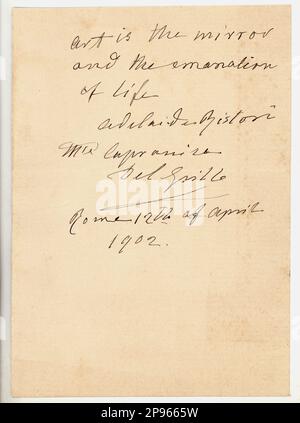 art is the mirror
and the emanation
of life
Adelaide Ristori
Mse Capranica
Del Grillo
Rome 12th of April
1902.
alamy
alamy
Image ID: 2P9665W
www.alamy.com